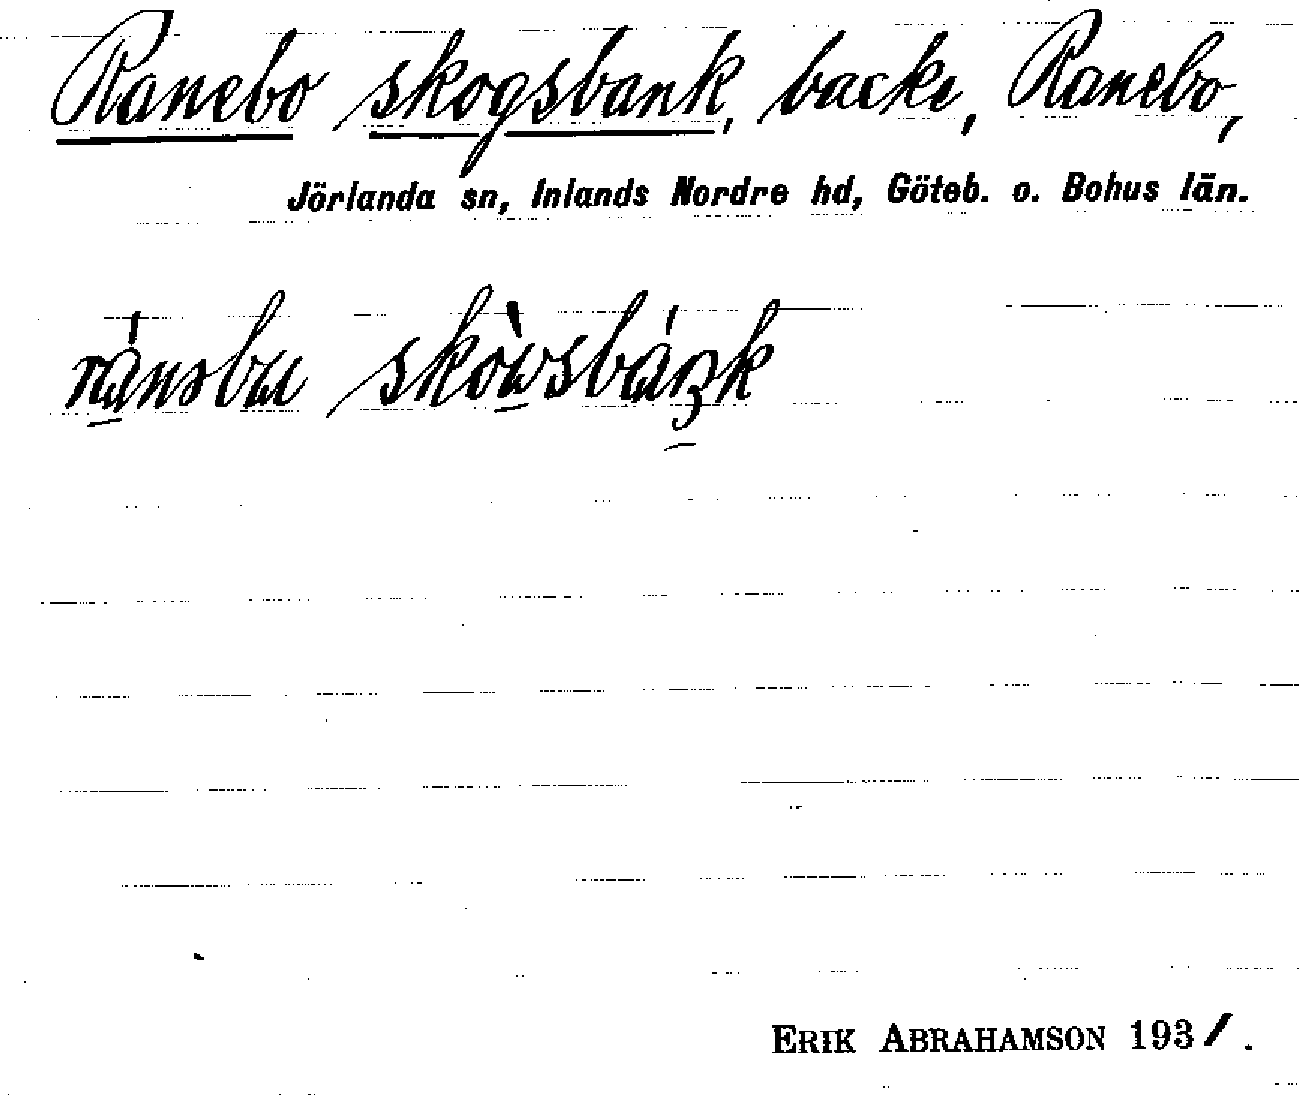 Ranebo skogsbank, backe, Ranebo,
Jörlanda sn, Inlands Nordre hd, Göteb. o. Bohus län.
ERIK ABRAHAMSON 1931.